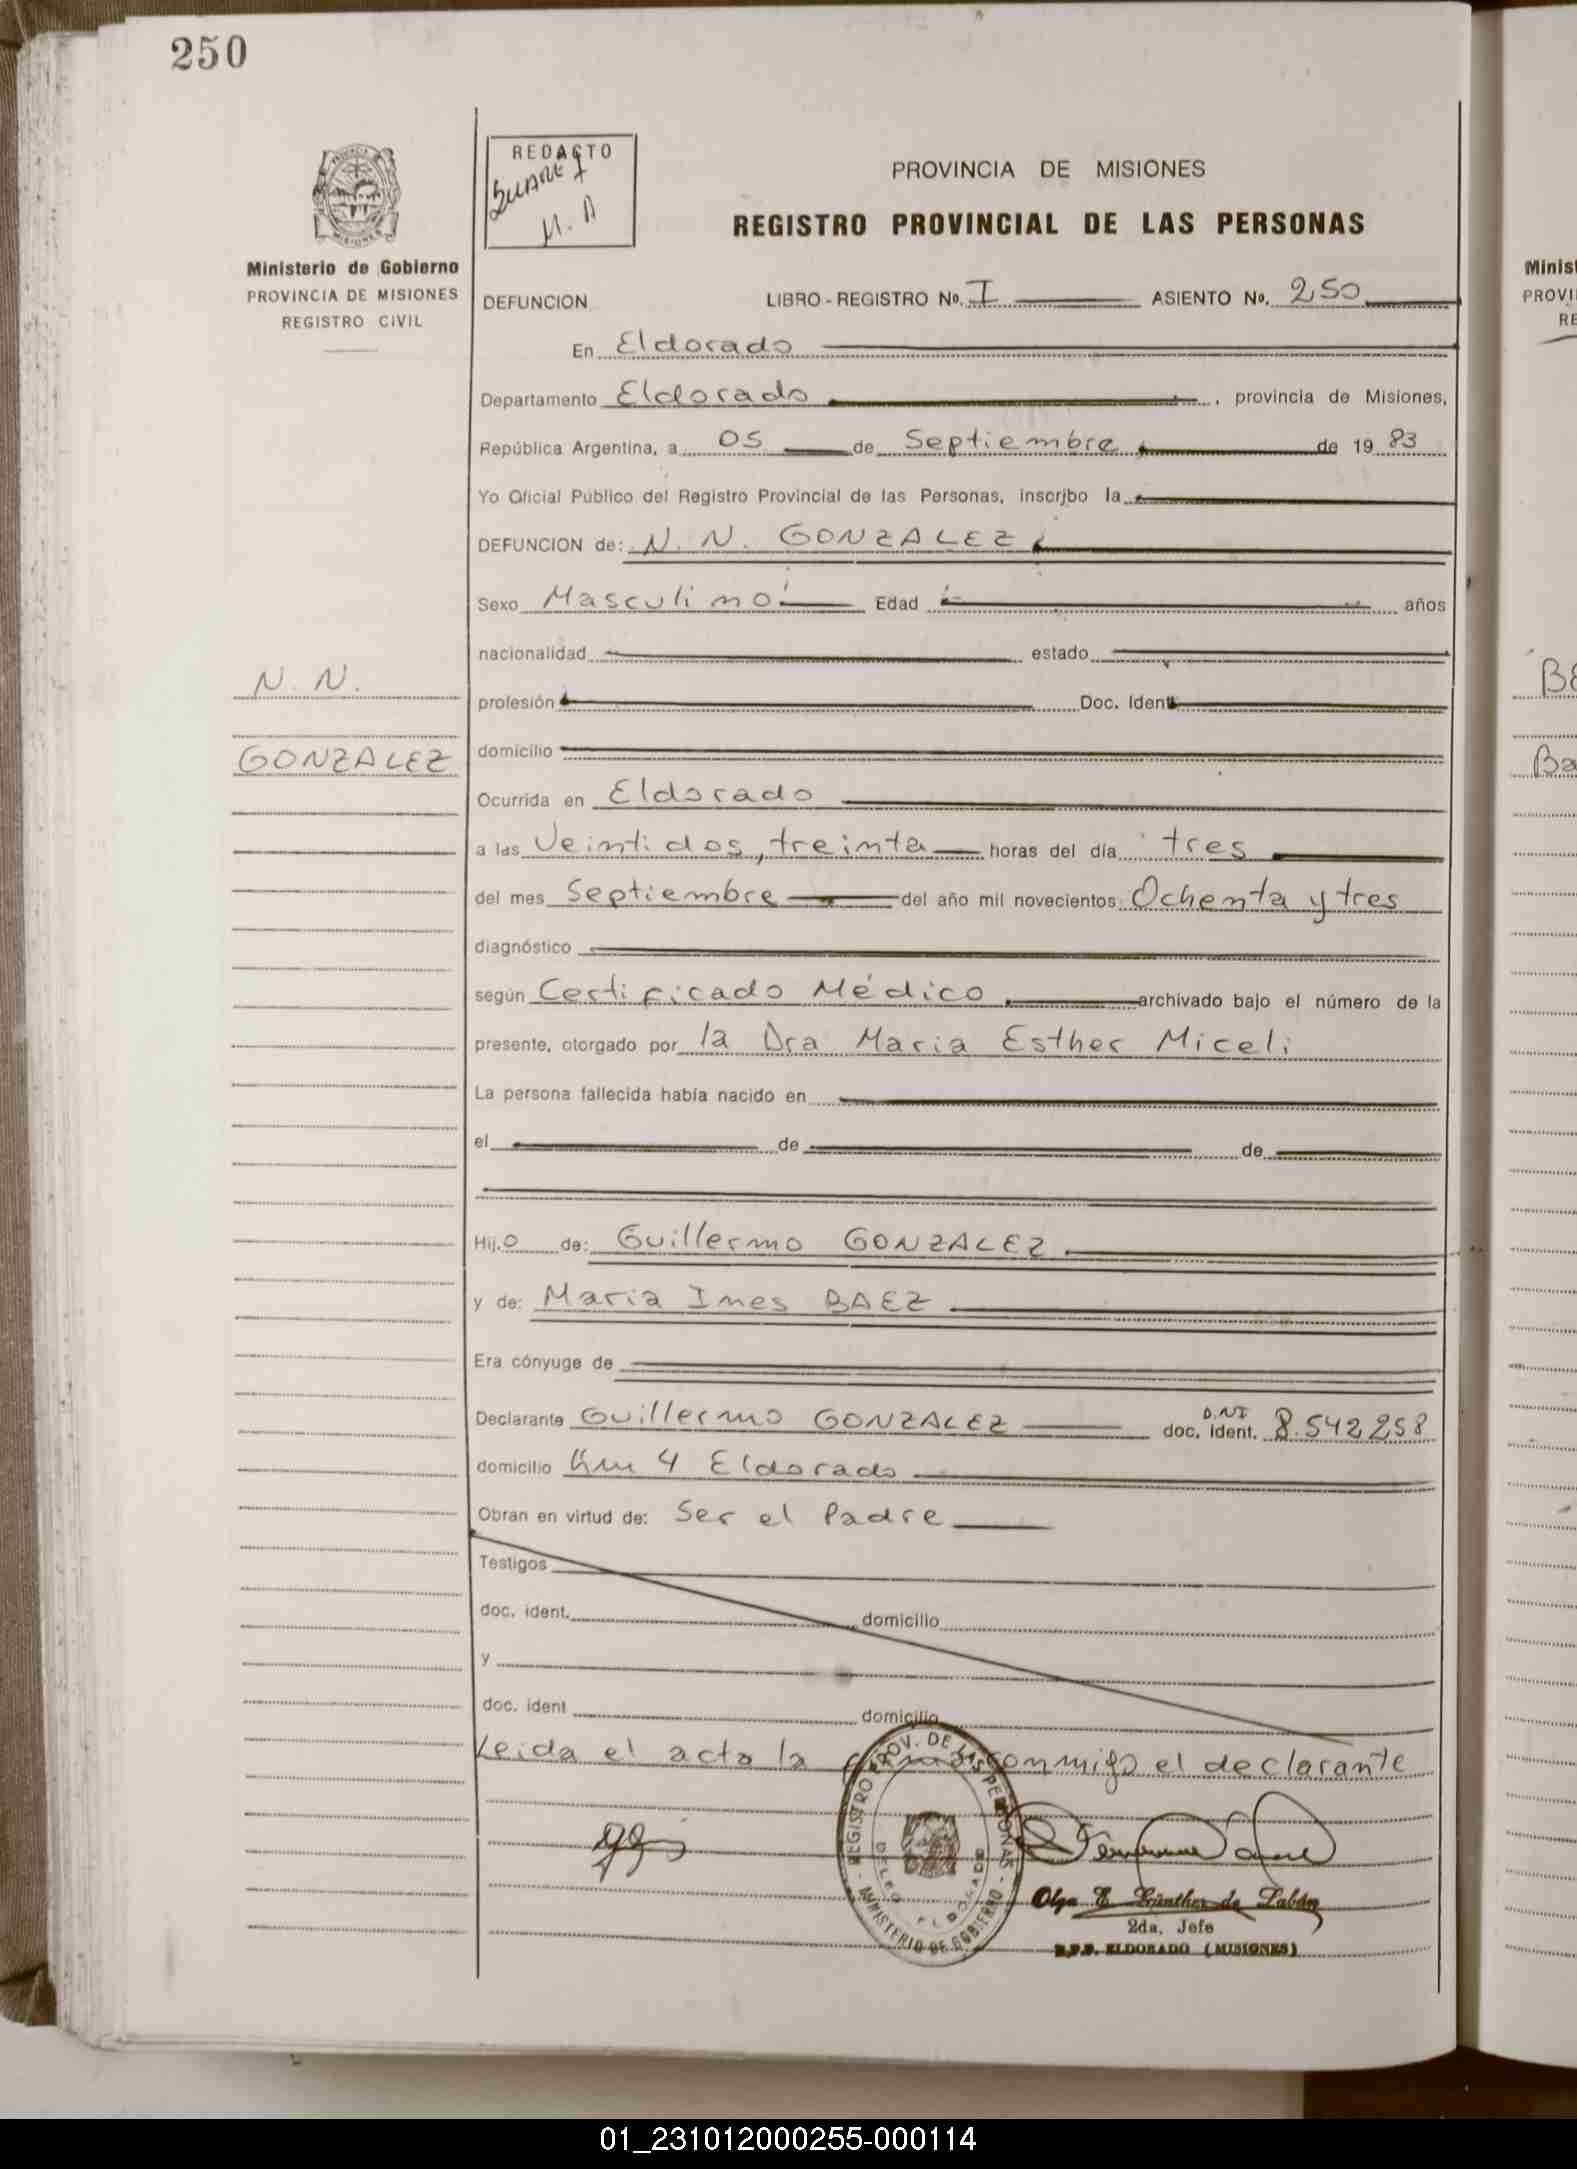 250
REDACTO
SUAREZ
M. A
PROVINCIA DE MISIONES
REGISTRO PROVINCIAL DE LAS PERSONAS
Ministerio de Gobierno
PROVINCIA DE MISIONES
REGISTRO CIVIL
DEFUNCION LIBRO - REGISTRO No. I ASIENTO No. 250
En Eldorado
Departamento Eldorado, provincia de Misiones,
República Argentina, a 05 de Septiembre de 19 83
Yo Oficial Público del Registro Provincial de las Personas, inscribo la
DEFUNCION de: N. N. GONZALEZ
Sexo Masculino Edad años
nacionalidad estado
N. N.
profesión Doc. Ident.
GONZALEZ
domicilio
Ocurrida en Eldorado
a las Veintidos, treinta horas del día tres
del mes Septiembre del año mil novecientos Ochenta y tres
diagnóstico
según Certificado Médico archivado bajo el número de la
presente, otorgado por la Dra Maria Esther Miceli
La persona fallecida había nacido en
el de de
Hij.o de: Guillermo GONZALEZ
y de: Maria Ines BAEZ
Era cónyuge de
Declarante Guillermo GONZALEZ doc. ident. D.N.I 8.542258
domicilio Km 4 Eldorado
Obran en virtud de: Ser el Padre
Testigos
doc. ident. domicilio
y
doc. ident domicilio
Leida el acta la firma conmigo el declarante
REGISTRO PROV. DE LAS PERSONAS
MINISTERIO DE GOBIERNO
ELDORADO
Olga E. Günther de Zabán
2da. Jefe
R.P.P. ELDORADO (MISIONES)
Minist
PROVI
RE
BE
Ba
01_231012000255-000114